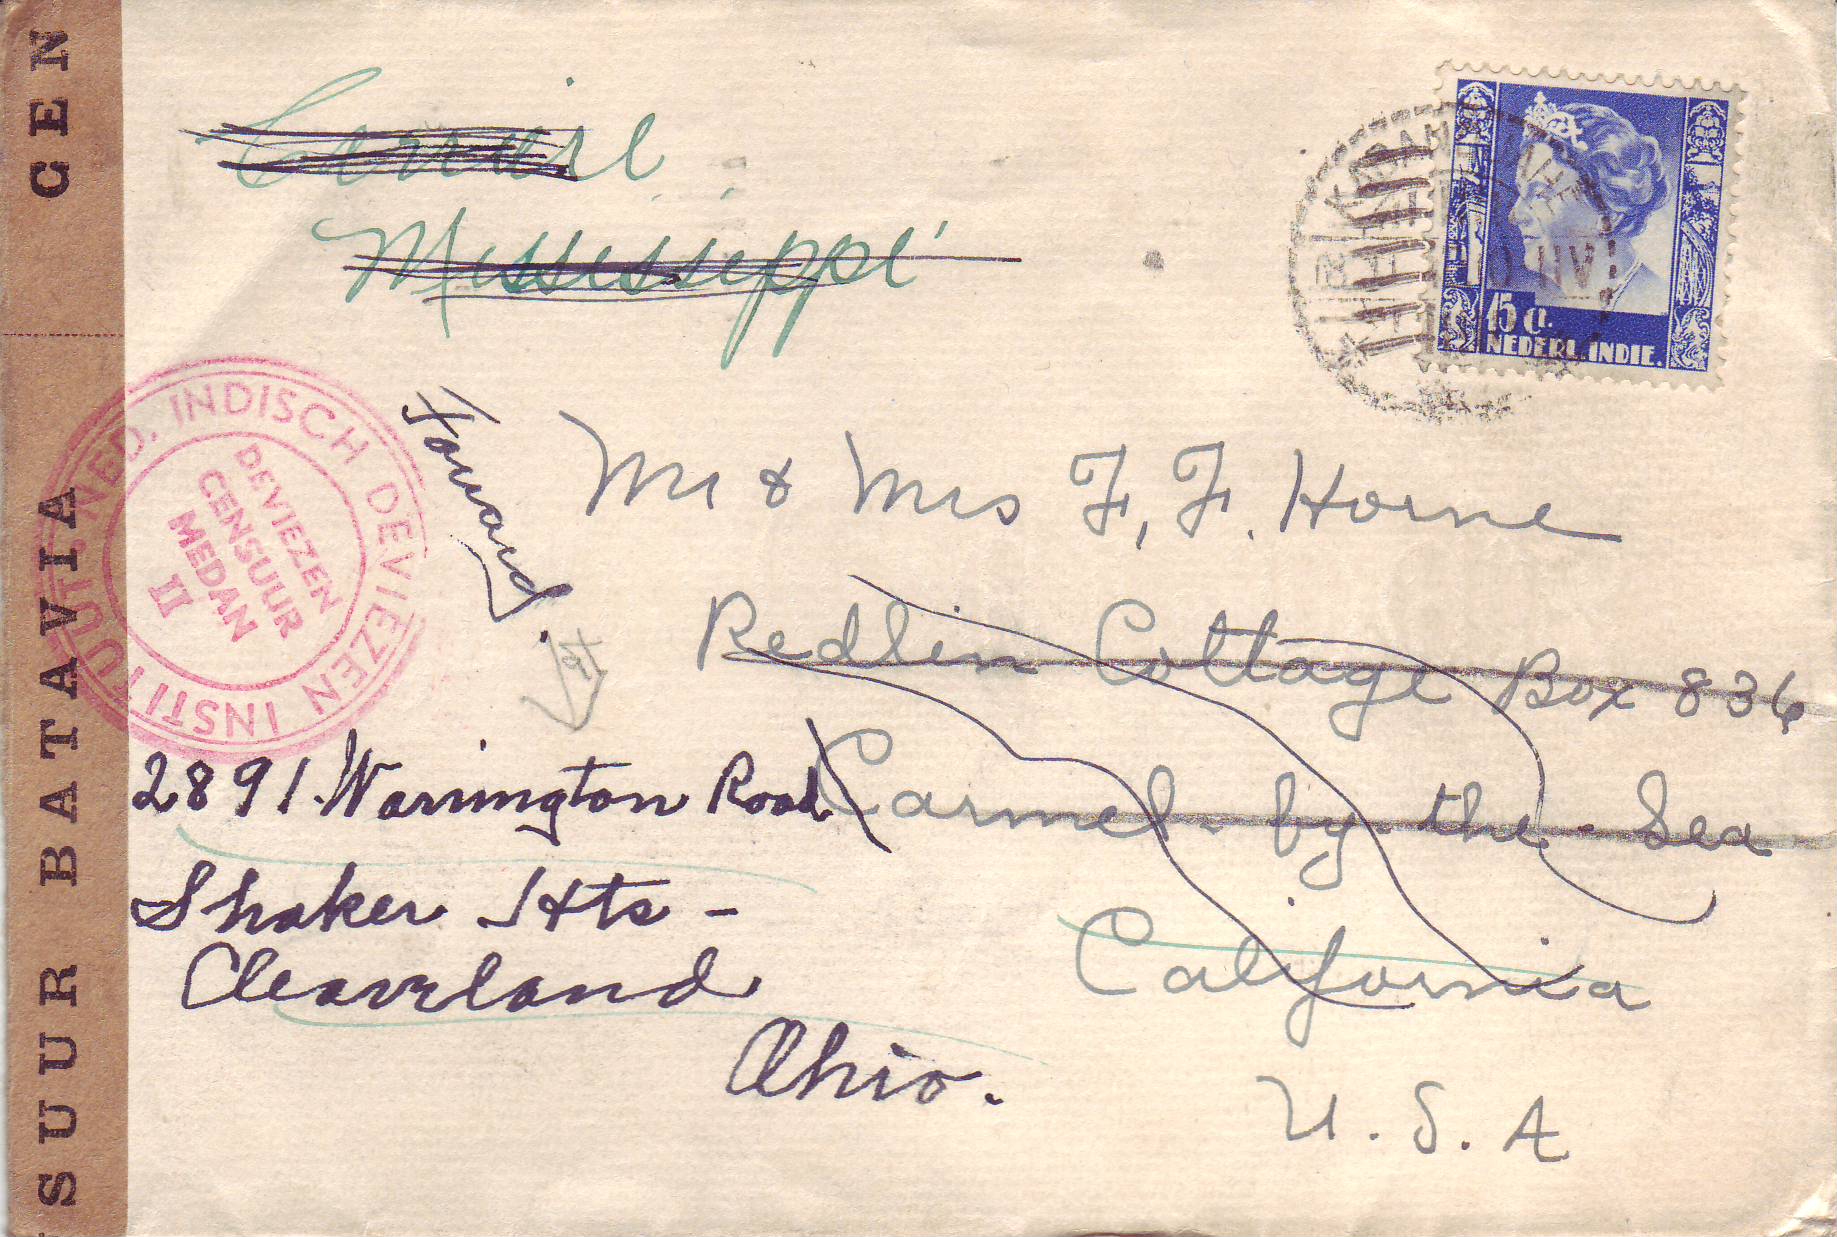 CENSUUR BATAVIA
CEN
Mississippi
KABANDJAHE
15 ct.
NEDERL. INDIE.
NED. INDISCH DEVIEZEN INSTITUUT
DEVIEZEN
CENSUUR
MEDAN
II
Forward.
Mr & Mrs F. F. Horne
Redlin Cottage Box 836
Carmel-by-the-Sea
California
U.S.A
2891 Warrington Road
Shaker Hts-
Cleaveland
Ohio.